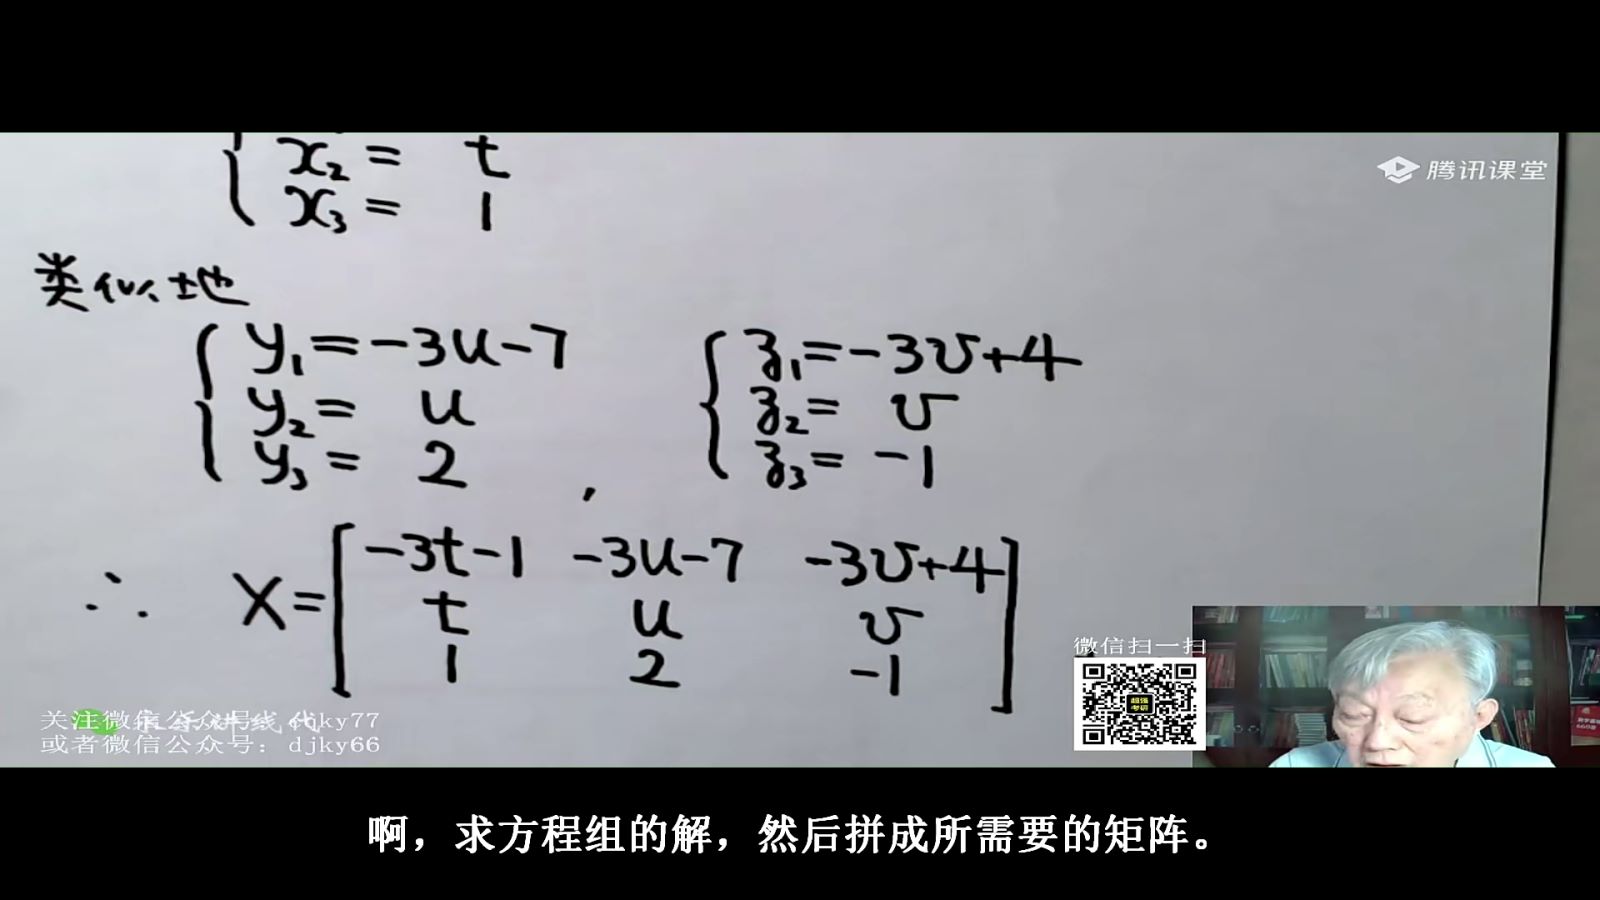 x₂ = t
x₃ = 1
腾讯课堂
类似地
y₁ = -3u-7
y₂ = u
y₃ = 2
,
z₁ = -3v+4
z₂ = v
z₃ = -1
∴ X = [ -3t-1 -3u-7 -3v+4
t u v
1 2 -1 ]
微信扫一扫
关注微信公众号: djky77
或者微信公众号: djky66
啊，求方程组的解，然后拼成所需要的矩阵。